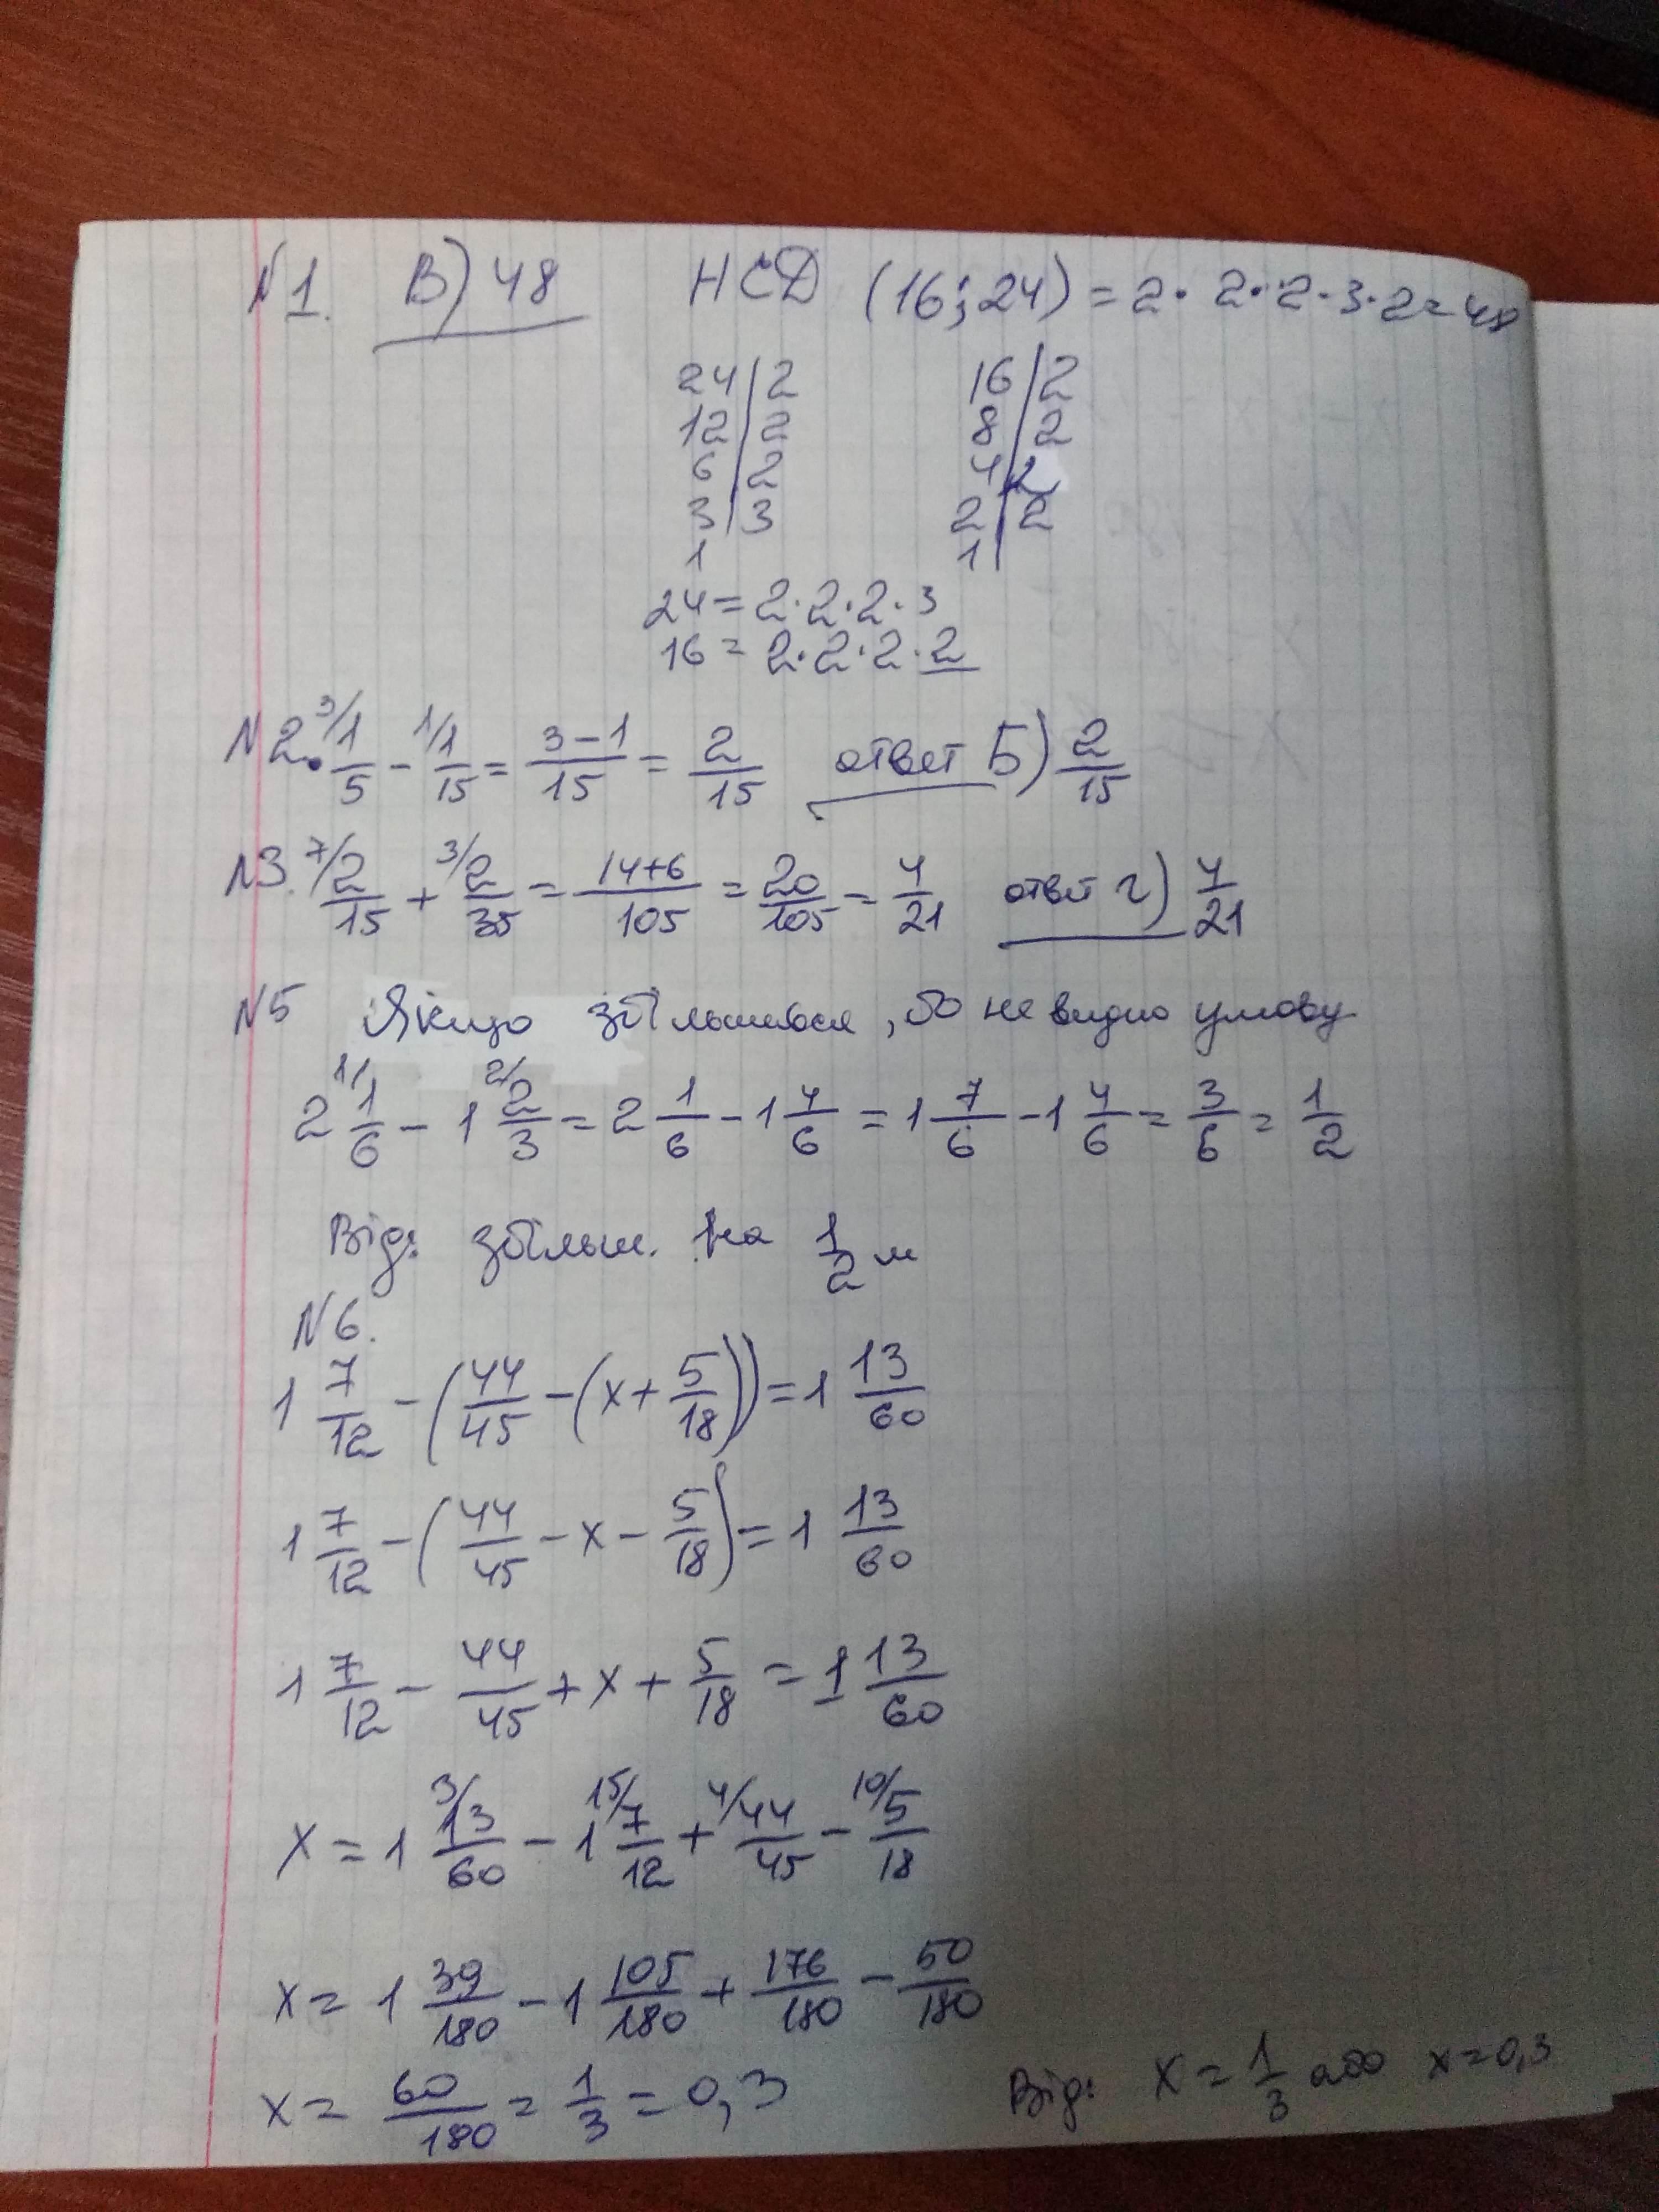 №1. В) 48 НСД (16; 24) = 2 · 2 · 2 · 3 · 2 = 48
24 | 2 16 | 2
12 | 2 8 | 2
6 | 2 4 | 2
3 | 3 2 | 2
1 1
24 = 2 · 2 · 2 · 3
16 = 2 · 2 · 2 · 2
№2. 3/ 1/5 - 1/ 1/15 = (3-1)/15 = 2/15 ответ Б) 2/15
№3. 7/ 2/15 + 3/ 2/35 = (14+6)/105 = 20/105 = 4/21 ответ г) 4/21
№5 Якщо збільшився, бо не видно умову
2 1/ 1/6 - 1 2/ 2/3 = 2 1/6 - 1 4/6 = 1 7/6 - 1 4/6 = 3/6 = 1/2
Від: збільш. на 1/2 м
№6.
1 7/12 - (44/45 - (x + 5/18)) = 1 13/60
1 7/12 - (44/45 - x - 5/18) = 1 13/60
1 7/12 - 44/45 + x + 5/18 = 1 13/60
x = 1 3/ 13/60 - 1 15/ 7/12 + 4/ 44/45 - 10/ 5/18
x = 1 39/180 - 1 105/180 + 176/180 - 50/180
x = 60/180 = 1/3 = 0,3 Від: x = 1/3 або x = 0,3